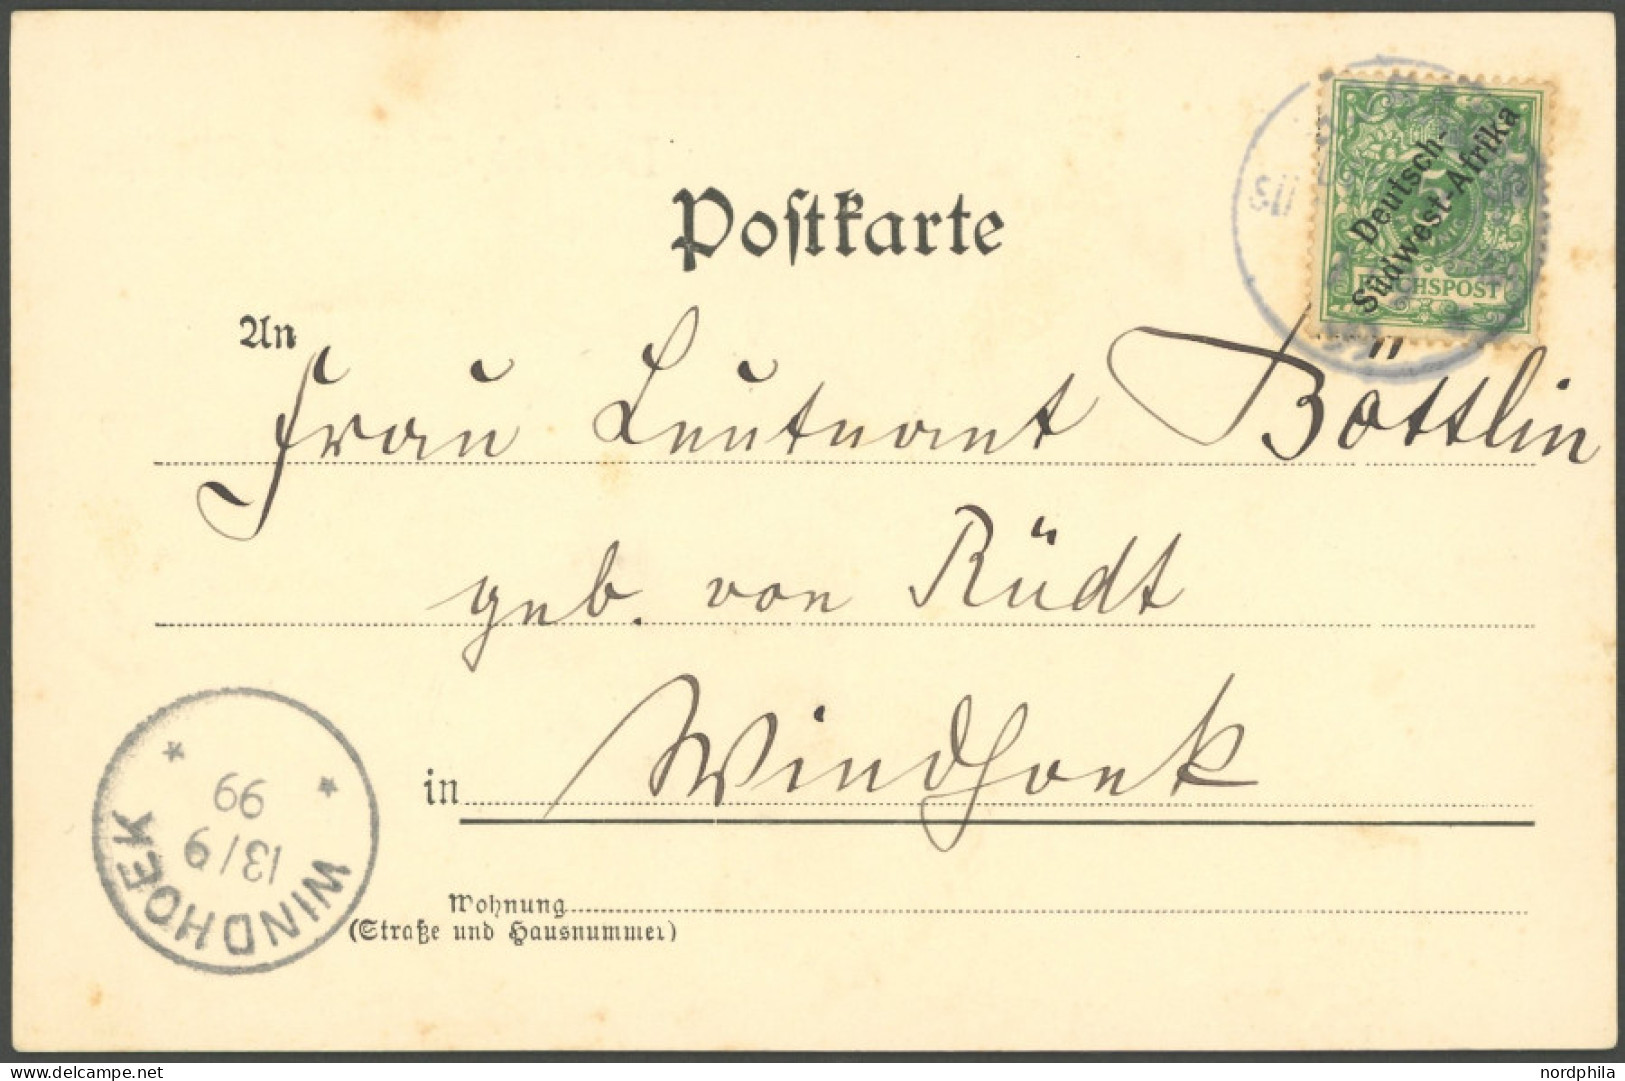 Postkarte
Deutsch-
Südwest-Afrika
REICHSPOST
An
Frau Leutnant Böttlin
geb. von Rüdt
in Windhoek
WINDHOEK
13/9
99
Wohnung
(Straße und Hausnummer)
© www.ansichtskartenversand.com